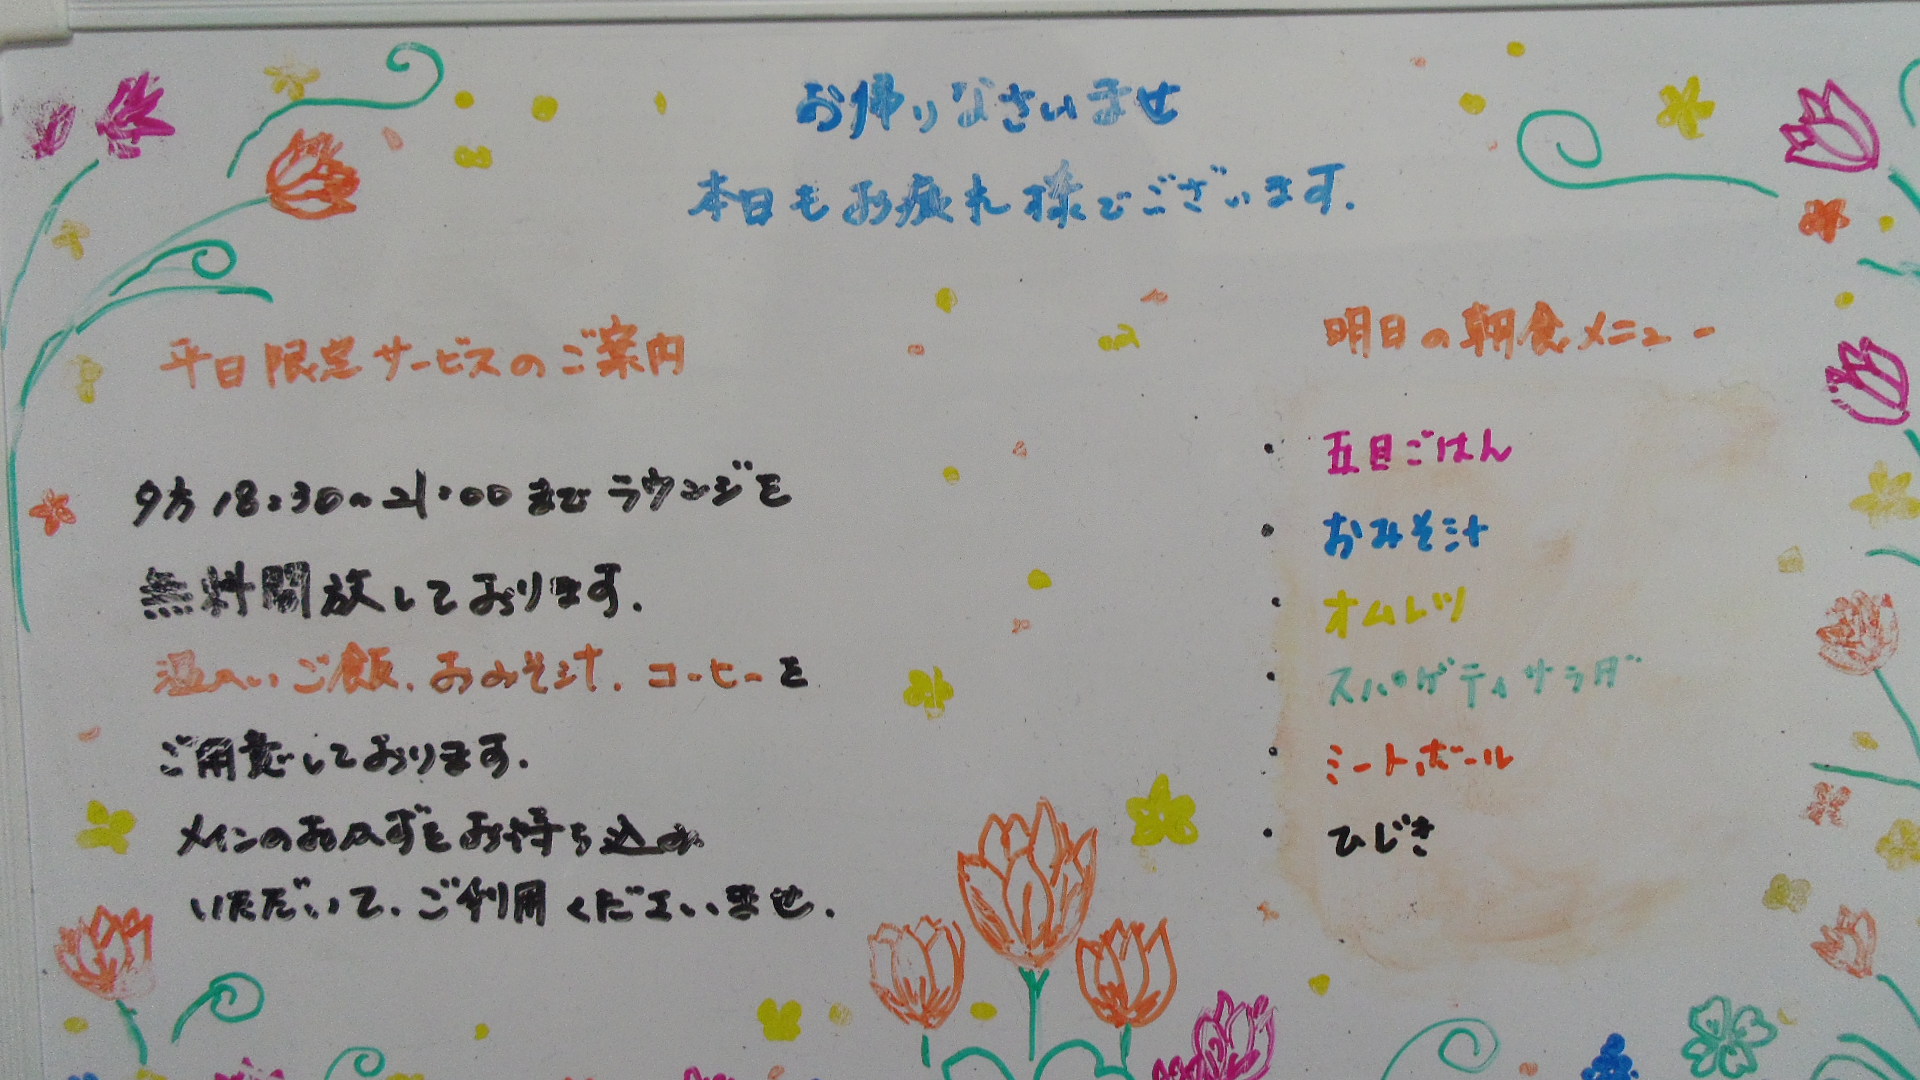 お帰りなさいませ
本日もお疲れ様でございます.
平日限定サービスのご案内
夕方18:30~21:00までラウンジを
無料開放しております.
温かいご飯.おみそ汁.コーヒーを
ご用意しております.
メインのおかずをお持ち込み
いただいて.ご利用くださいませ.
明日の朝食メニュー
・五目ごはん
・おみそ汁
・オムレツ
・スパゲティサラダ
・ミートボール
・ひじき